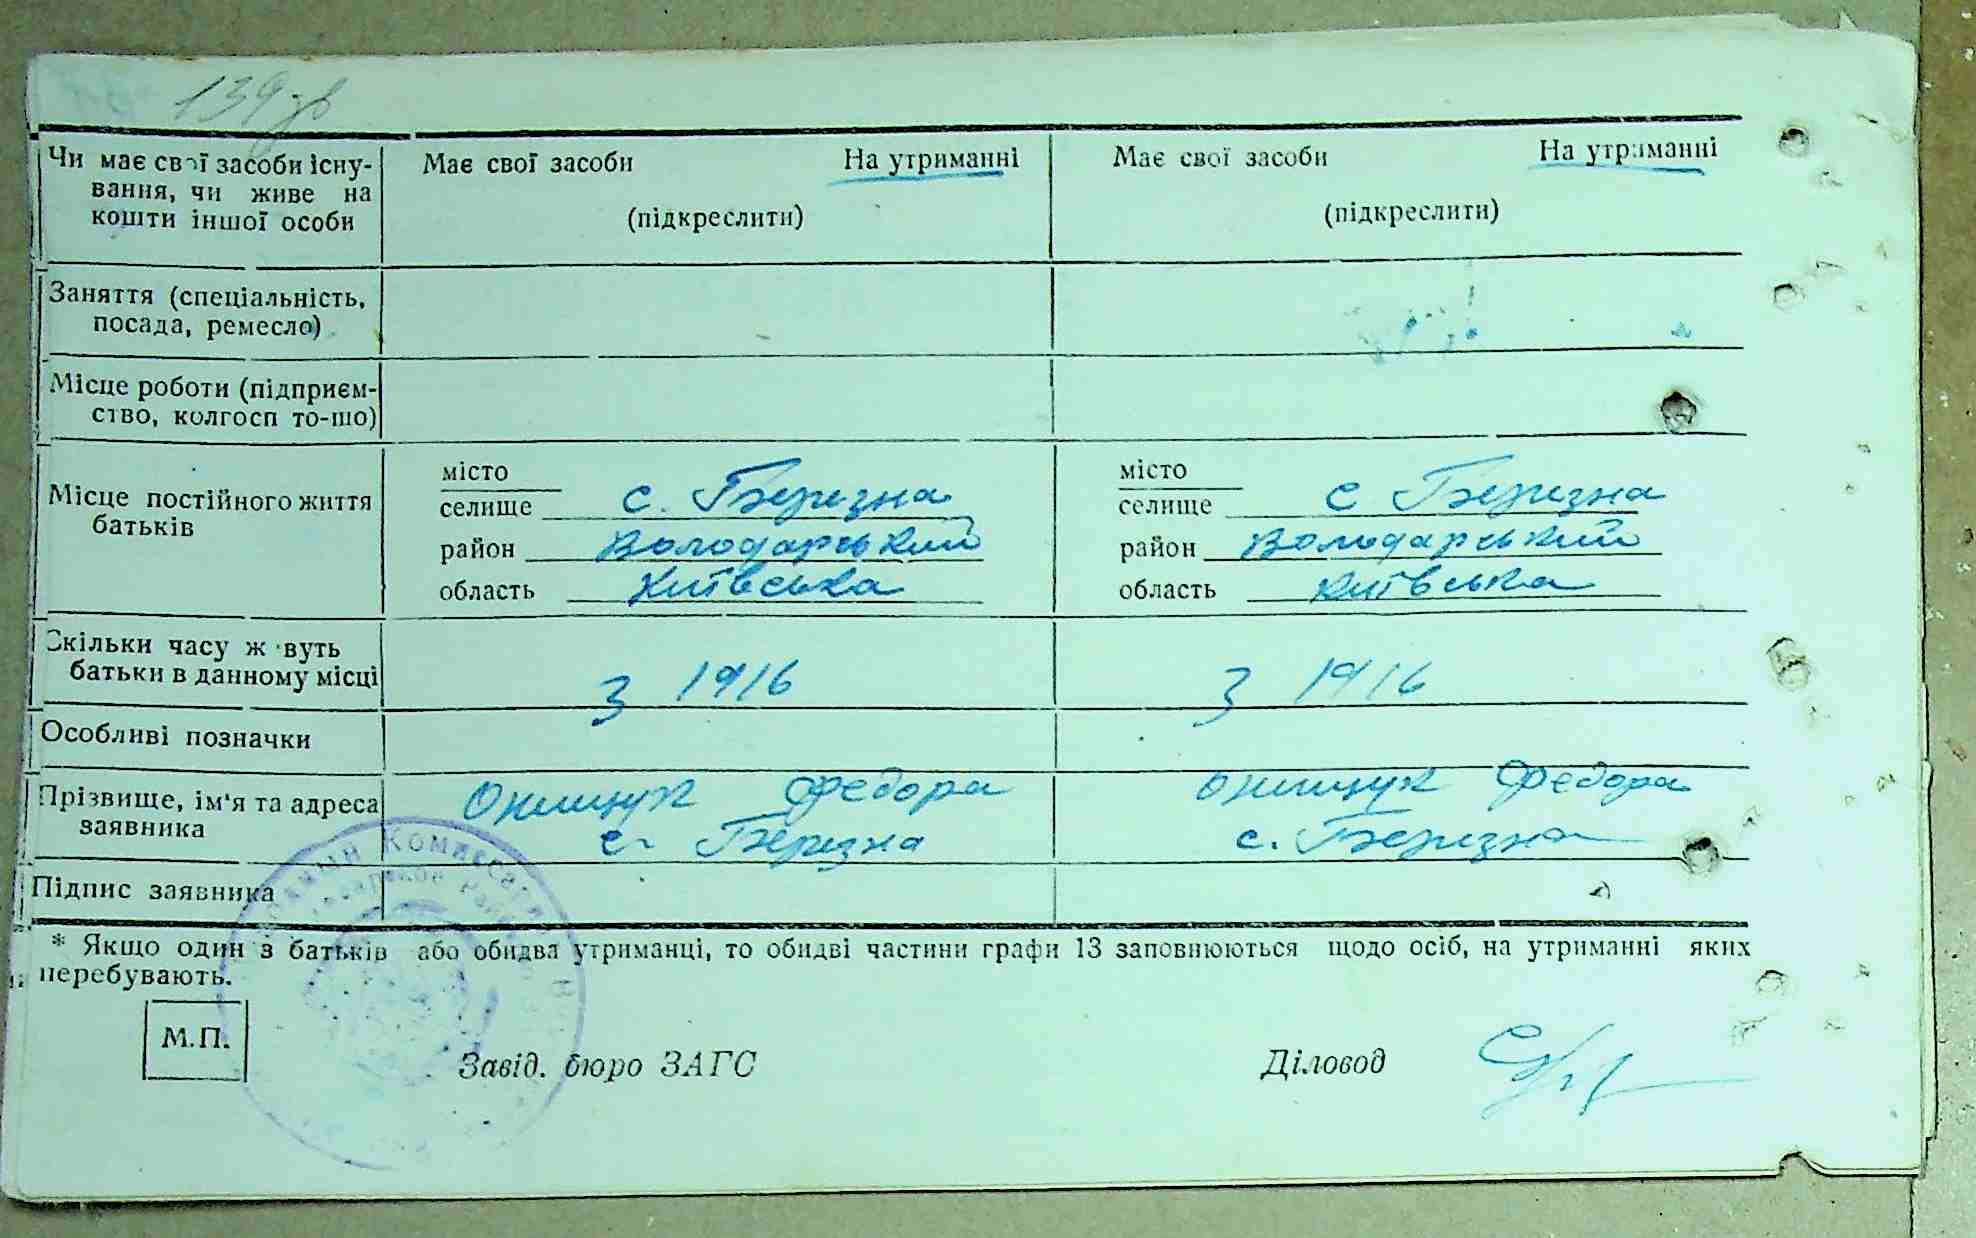 139 зв
Чи має свої засоби існу- Має свої засоби На утриманні Має свої засоби На утриманні
вання, чи живе на
кошти іншої особи (підкреслити) (підкреслити)
Заняття (спеціальність,
посада, ремесло)
Місце роботи (підприєм-
ство, колгосп то-що)
місто місто
Місце постійного життя селище с. Березна селище с Березна
батьків район Володарський район Володарський
область Київська область Київська
Скільки часу живуть
батьки в данному місці з 1916 з 1916
Особливі позначки
Прізвище, ім'я та адреса Онищук Федора Онищук Федора
заявника с. Березна с. Березна
Підпис заявника
* Якщо один з батьків або обидва утриманці, то обидві частини графи 13 заповнюються щодо осіб, на утриманні яких
перебувають.
М.П. Завід. бюро ЗАГС Діловод